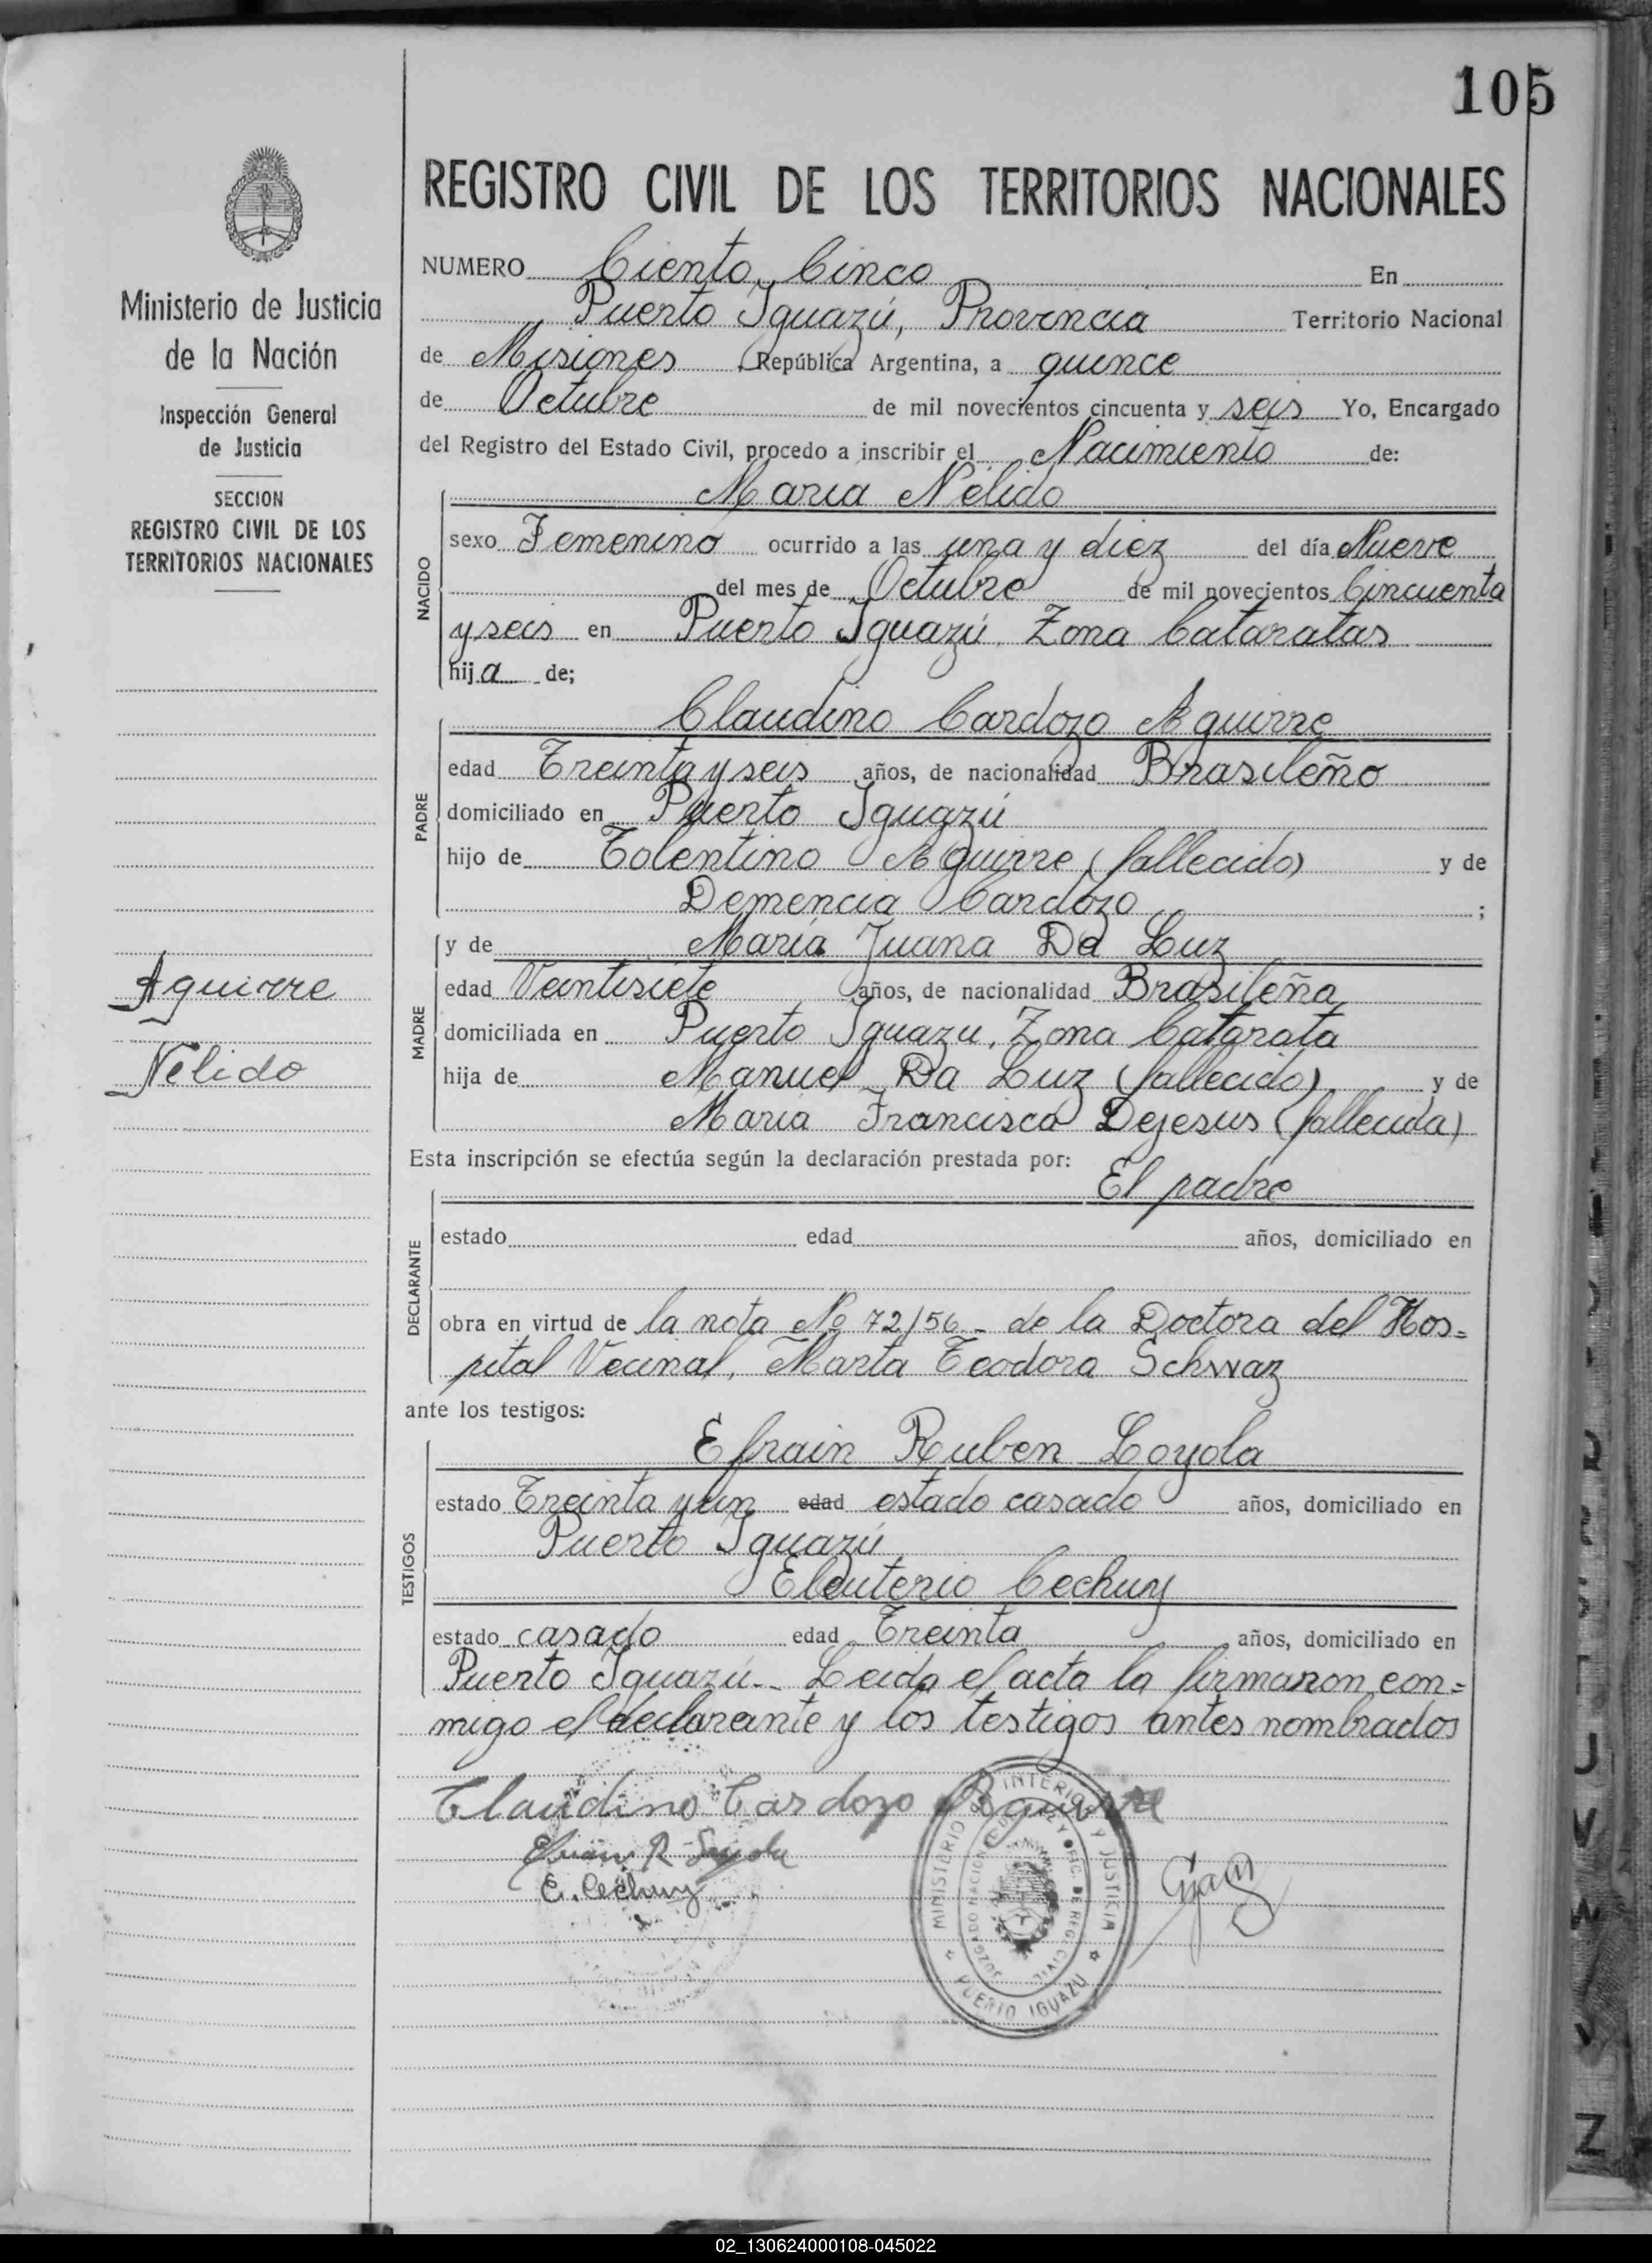 105
Ministerio de Justicia
de la Nación
Inspección General
de Justicia
SECCION
REGISTRO CIVIL DE LOS
TERRITORIOS NACIONALES
Aguirre
Nelido
REGISTRO CIVIL DE LOS TERRITORIOS NACIONALES
NUMERO Ciento Cinco En
Puerto Iguazú, Provincia Territorio Nacional
de Misiones República Argentina, a quince
de Octubre de mil novecientos cincuenta y seis Yo, Encargado
del Registro del Estado Civil, procedo a inscribir el Nacimiento de:
NACIDO
Maria Nelido
sexo Femenino ocurrido a las una y diez del día Nueve
del mes de Octubre de mil novecientos Cincuenta
y seis en Puerto Iguazú, Zona Cataratas
hija de;
PADRE
Claudino Cardozo Aguirre
edad Treinta y seis años, de nacionalidad Brasileño
domiciliado en Puerto Iguazú
hijo de Tolentino Aguirre (fallecido) y de
Demencia Cardozo ;
MADRE
y de María Juana Da Luz
edad Veintisiete años, de nacionalidad Brasileña
domiciliada en Puerto Iguazu, Zona Catarata
hija de Manuel Da Luz (fallecido) y de
Maria Francisca Dejesus (fallecida)
Esta inscripción se efectúa según la declaración prestada por:
DECLARANTE
El padre
estado edad años, domiciliado en
obra en virtud de la nota No 72/56 - de la Doctora del Hos=
pital Vecinal, Marta Teodora Schwaz
ante los testigos:
TESTIGOS
Efrain Ruben Loyola
estado Treinta y un edad estado casado años, domiciliado en
Puerto Iguazú
Eleuterio Cechuy
estado casado edad Treinta años, domiciliado en
Puerto Iguazú.- Leida el acta la firmaron con=
migo el declarante y los testigos antes nombrados
Claudino Cardozo Aguirre
E. Cechuy
MINISTERIO INTERIOR Y JUSTICIA
JUZGADO NACIONAL DE PAZ Y OFIC. DE REG. CIVIL
PUERTO IGUAZU
02_130624000108-045022